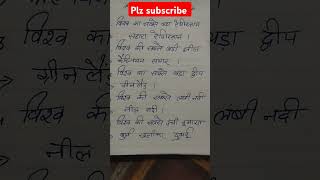 Plz subscribe
विश्व का सबसे बड़ा रेगिस्तान
सहारा रेगिस्तान ।
विश्व की सबसे बड़ी झील
कैस्पियन सागर ।
विश्व का सबसे बड़ा द्वीप
ग्रीनलैंड ।
विश्व की सबसे लम्बी नदी
नील नदी ।
विश्व की सबसे ऊंची इमारत
बुर्ज खलीफा दुबई